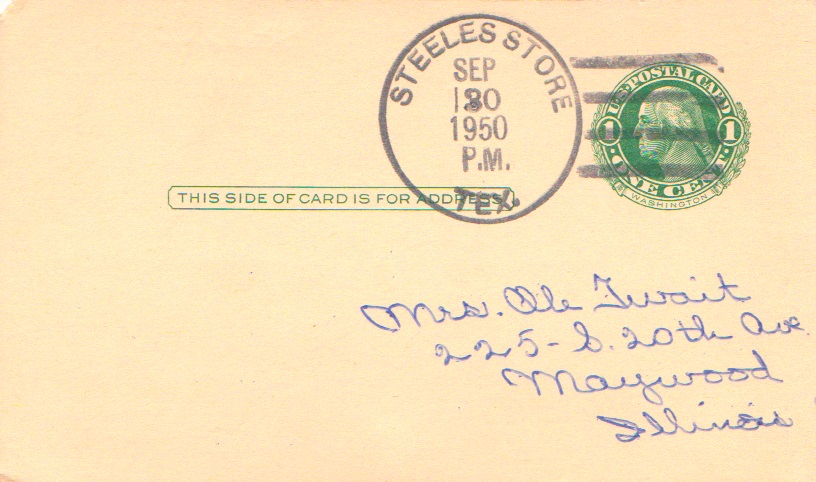 STEELES STORE
SEP
30
1950
P.M.
TEX.
U.S. POSTAL CARD
1 1
ONE CENT
WASHINGTON
THIS SIDE OF CARD IS FOR ADDRESS
Mrs. Ole Twait
225 - S. 20th Ave.
Maywood
Illinois